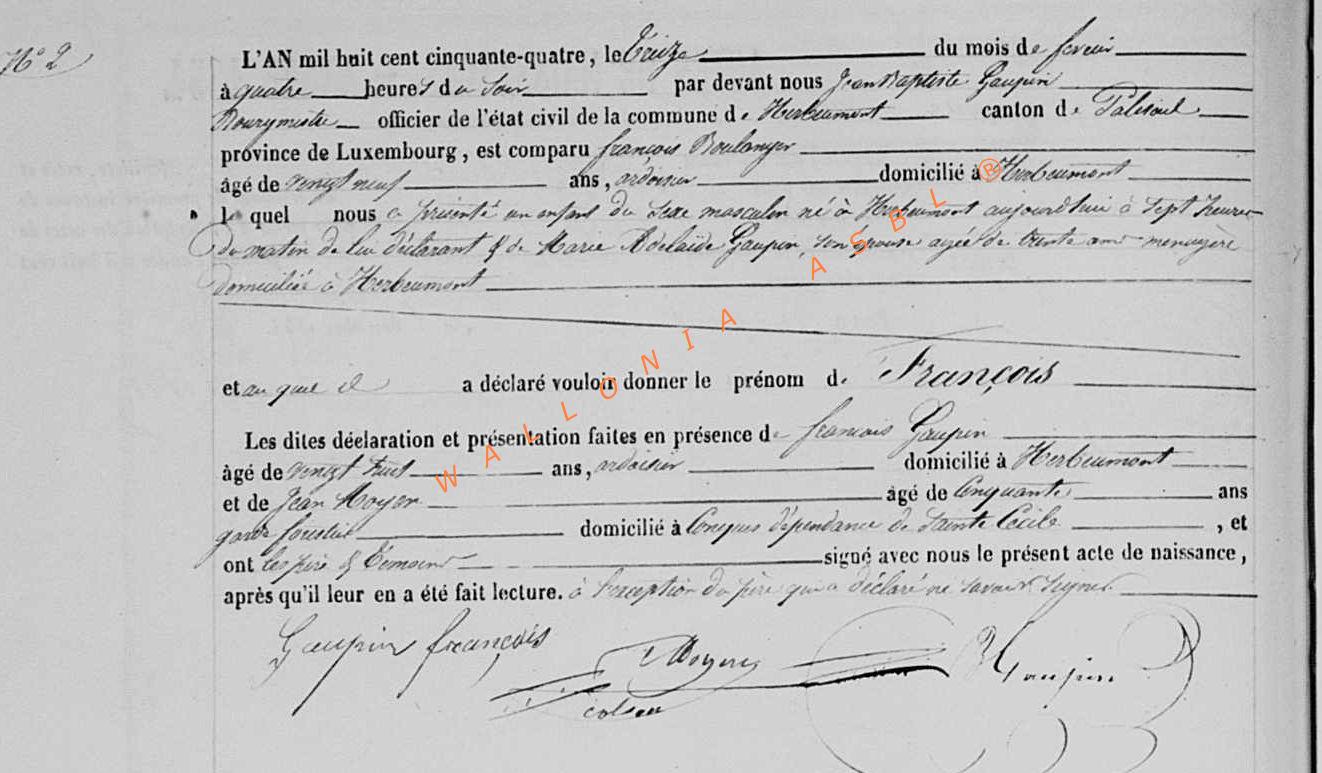 N° 2
L'AN mil huit cent cinquante-quatre, le treize du mois de fevrier
à quatre heures du soir par devant nous Jean Baptiste Gaupin
Bourgmestre officier de l'état civil de la commune de Herbeumont canton de Paliseul
province de Luxembourg, est comparu françois Boulanger
âgé de vingt neuf ans, ardoisier domicilié à Herbeumont
le quel nous a présenté un enfant du sexe masculin né à Herbeumont aujourd'hui à sept heures
du matin de lui déclarant & de Marie Adelaïde Gaupin, son épouse agée de trente ans menagère
domiciliée à Herbeumont
et au quel il a déclaré vouloir donner le prénom de François
Les dites déclaration et présentation faites en présence de francois Gaupin
âgé de vingt huit ans, ardoisier domicilié à Herbeumont
et de Jean Noyer âgé de Cinquante ans
garde forestier domicilié à Conques dépendance de Sainte Cécile, et
ont les père & témoins signé avec nous le présent acte de naissance,
après qu'il leur en a été fait lecture. à l'exception du père qui a déclaré ne savoir signer
Gaupin françois Gaupin
WALLONIA ASBL ®